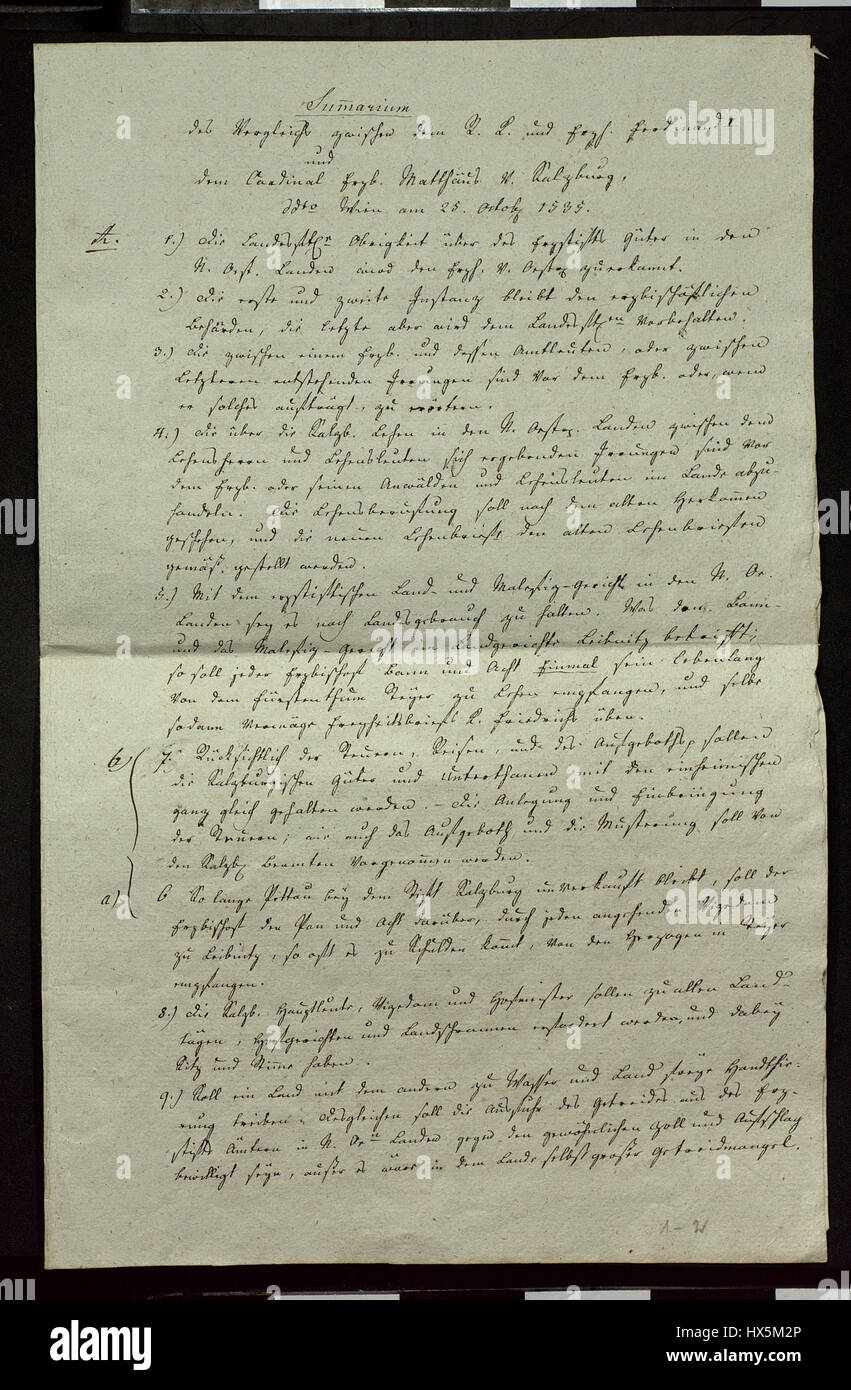 Summarium
des Vergleichs zwischen dem R. K. und Erzh. Ferdinand I
und
dem Cardinal Erzb. Matthäus v. Salzburg,
ddto Wien am 25. Octob. 1535.
A. 1.) Die Landesfl. Obrigkeit über des Erzstifts Güter in den
N. Oest. Landen wird den Erzh. v. Oestr. zuerkannt.
2.) Die erste und zweite Instanz bleibt den erzbischöflichen
Behörden, die letzte aber wird dem Landesf. vorbehalten.
3.) Die zwischen einem Erzb. und dessen Amtleuten, oder zwischen
Letzteren entstehenden Irrungen sind vor dem Erzb. oder, wem
er solches aufträgt, zu erörtern.
4.) Die über die Salzb. Lehen in den N. Oestr. Landen zwischen dem
Lehensherrn und Lehensleuten sich ergebenden Irrungen sind vor
dem Erzb. oder seinen Anwälden und Lehensleuten im Lande abzu-
handeln. Die Lehensberufung soll nach dem alten Herkommen
geschehen, und die neuen Lehenbriefe den alten Lehenbriefen
gemäß gestellt werden.
5.) Mit dem erzstiftischen Land- und Malefiz-Gericht in den N. Oe.
Landen sey es nach Landsgebrauch zu halten. Was den Bann-
und das Malefiz-Gericht im Landgerichte Leibnitz betrifft;
so soll jeder Erzbischof Bann und Acht Einmal sein lebenlang
von dem Fürstenthum Steyer zu Lehen empfangen, und selbe
sodann vermöge Freyheitsbriefs K. Friedrichs üben.
b) 7. Rücksichtlich der Steuern, Reisen, und des Aufgeboths, sollen
die Salzburgischen Güter und Unterthanen mit den einheimischen
ganz gleich gehalten werden. – Die Anlegung und Einbringung
der Steuern, wie auch das Aufgeboth und die Musterung soll von
den Salzb. Beamten vorgenommen werden.
a) 6 So lange Pettau bey dem Stift Salzburg unverkauft bleibt, soll der
Erzbischof den Pan und Acht darüber, durch jeden angehenden Vizedom
zu Leibnitz, so oft es zu Schulden kömt, von den Herzogen in Steyer
empfangen.
8.) Die Salzb. Hauptleute, Vizedom und Hofmeister sollen zu allen Land-
tägen, Hofgerichten und Landschrannen erfordert werden, und dabey
Sitz und Stimme haben.
9.) Soll ein Land mit dem andern zu Wasser und Land freye Handthie-
rung treiben. Desgleichen soll die Ausfuhr des Getreides aus des Erz-
stifts Ämtern in N. Oe. Landen gegen den gewöhnlichen Zoll und Aufschlag
bewilligt seyn, außer es wäre in dem Lande selbst großer Getreidmangel.
1-2
alamy
Image ID: HX5M2P
www.alamy.com